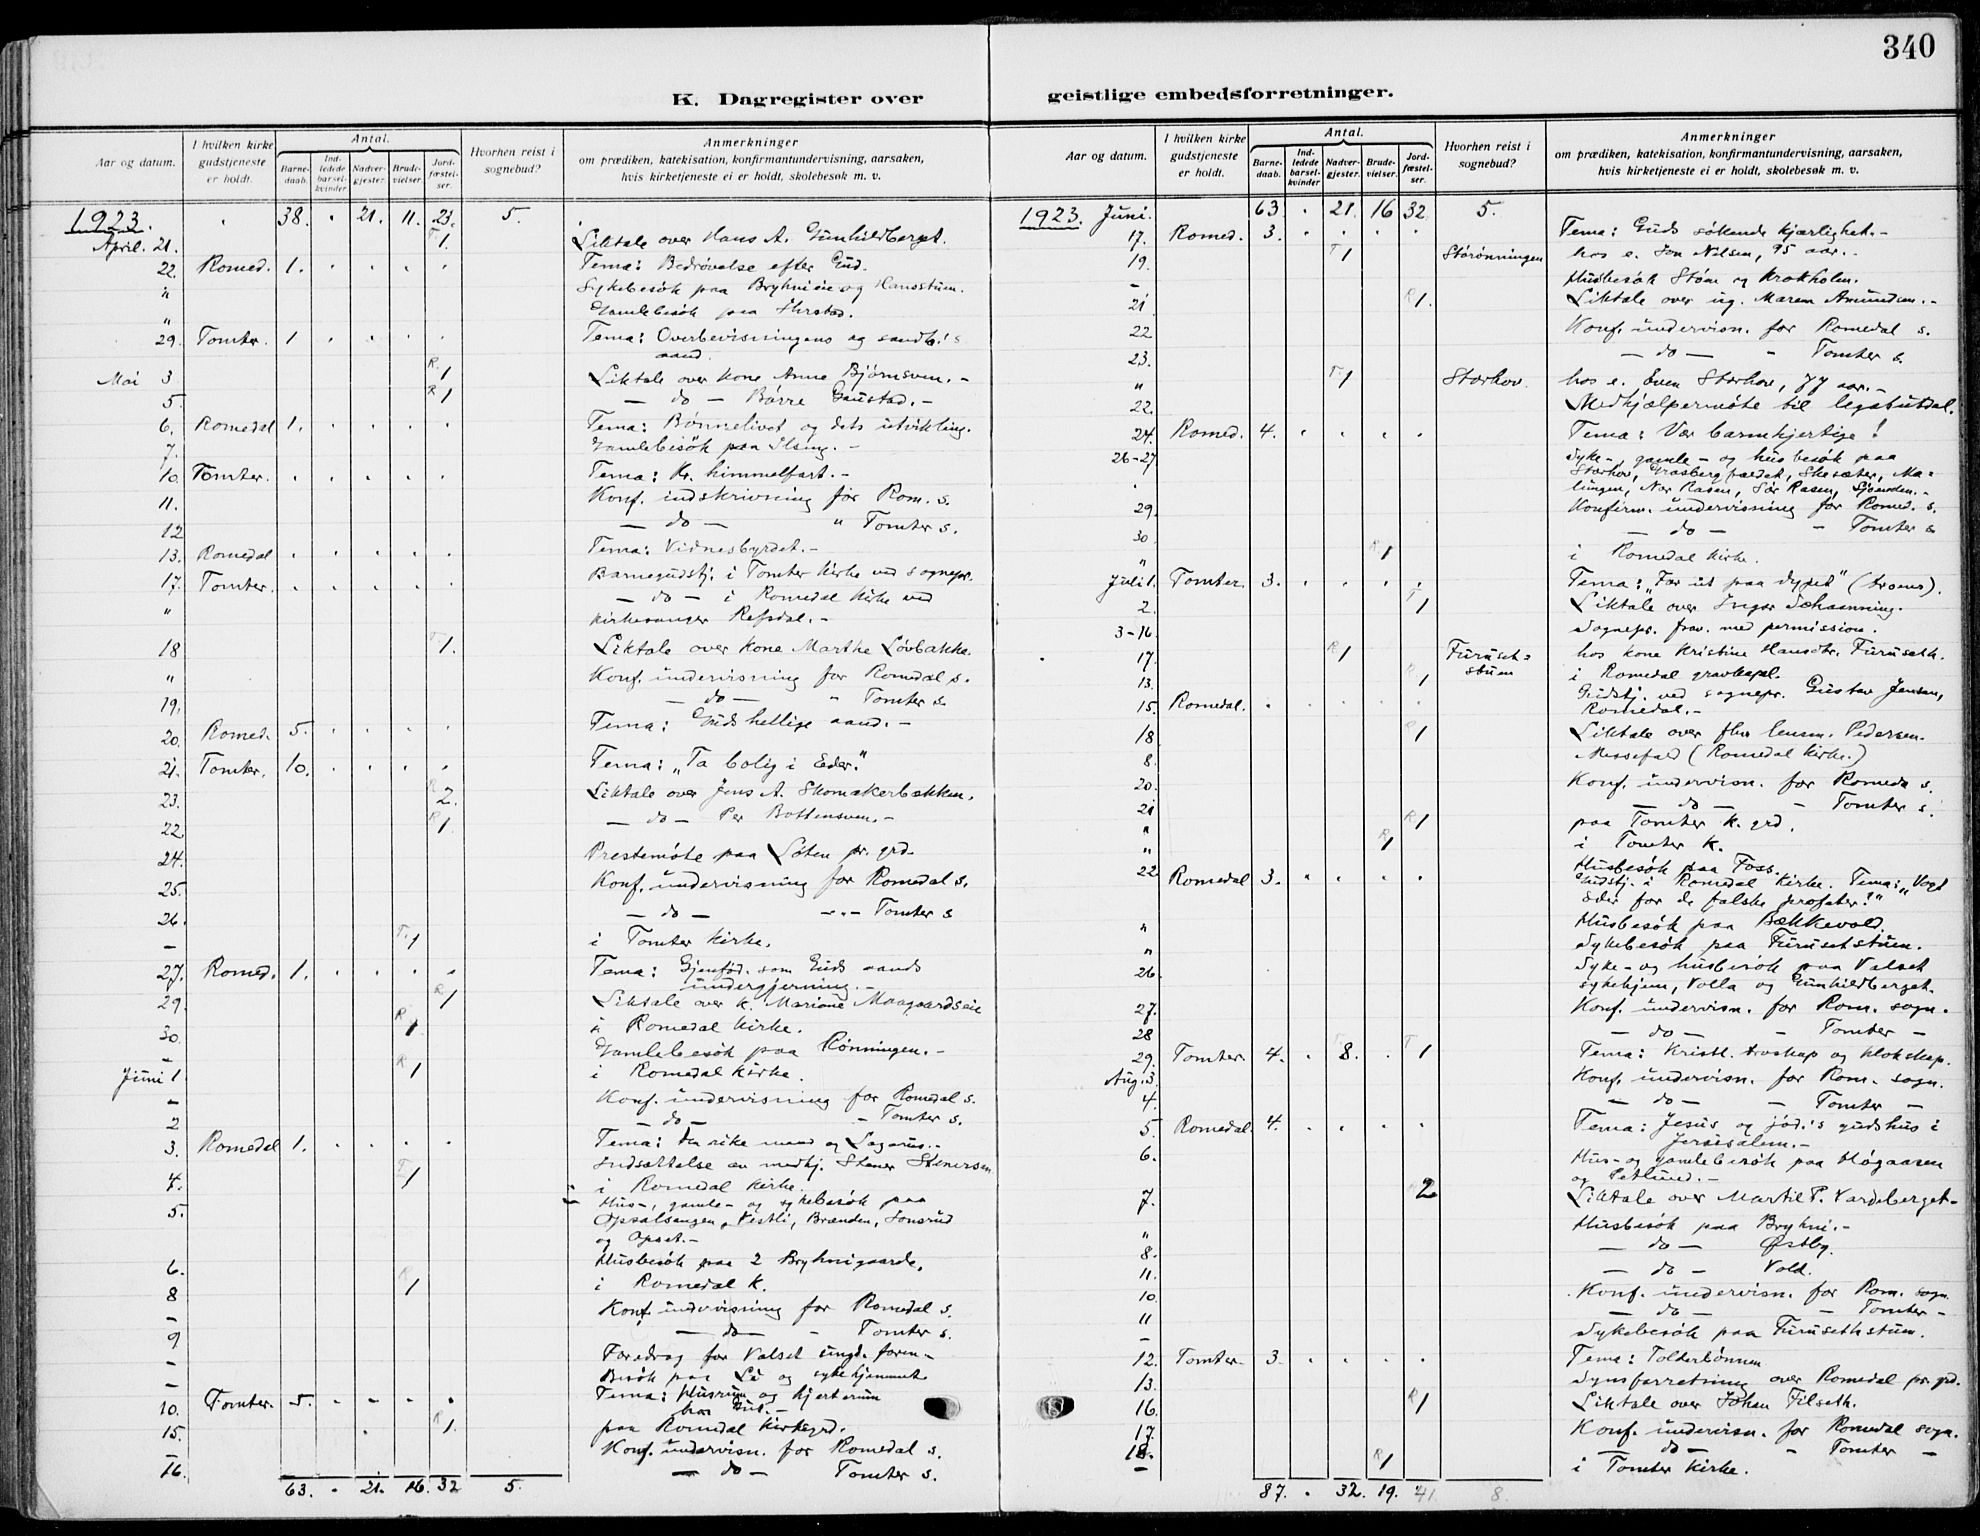 340
K. Dagregister over geistlige embedsforretninger.
Aar og datum. I hvilken kirke gudstjeneste er holdt. Antal. Barnedaab. Indledede barselkvinder Nadvergjester. Brudevielser Jordfæstelser. Hvorhen reist i sognebud? Anmerkninger
om prædiken, katekisation, konfirmantundervisning, aarsaken,
hvis kirketjeneste ei er holdt, skolebesøk m. v.
1923. 38. 21. 11. 21. 5.
April. 21. T 1. Liktale over Hans A. Gunhildberget.
22. Romed. 1. Tema: Bedrøvelse efter Gud.
" Sykebesøk paa Bryhnieie og Hansstuen.
" Gamlebesøk paa
29. Tomter. 1 Tema: Overbevisningens og sandh.'s
aand.
Mai 3 R. 1 Liktale over kone Anne Bjørnsven. -
5. R 1 - do - Børre Gaustad. -
6. Romedal 1. Tema: Bønnelivet og dets utvikling.
7. Gamlebesøk paa Ilseng. -
10. Tomter. Tema: Kr. himmelfart. -
11. Konf. indskrivning for Rom. s.
12 - do - " Tomter s.
13. Romedal Tema: Vidnesbyrdet. -
17. Tomter. Barnegudstj. i Tomter kirke ved sognepr.
" - do - i Romedal kirke ved
kirkesanger Refsdal. -
18 T 1. Liktale over kone Marthe Løvbakke.
" Konf. undervisning for Romedal s.
19. - do - " Tomter s.
20. Romed. 5. Tema: Guds hellige aand. -
21. Tomter. 10. Tema: "Ta bolig i Eder."
23. R 2. Liktale over Jens A. Skomakerbakken.
22 R 1. - do - Per Bottensven. -
24. Prestemøte paa Løten pr. grd.
25. Konf. undervisning for Romedal s.
26. - do - -"- Tomter s
- T. 1 i Tomter kirke.
27. Romed. 1. Tema: Gjenfød. som Guds aands
undergjerning. -
29. R 1 Liktale over k. Mariane Maagaardseie
30. R 1 i Romedal kirke.
- Gamlebesøk paa Rønningen. -
Juni 1. R 1 i Romedal kirke.
- Konf. undervisning for Romedal s.
2 - do - - Tomter s.
3. Romedal 1. Tema: Den rike mand og Lazarus. -
Indsættelse av medhj. Stener Stenersen
4. T 1 i Romedal kirke.
5. Hus-, gamle- og sykebesøk paa
Opsalsangen, Vestli, Brænden, Jonsrud
og Opset. -
6. Husbesøk paa 2 Bryhnigaarde.
8 R 1 i Romedal k.
- Konf. undervisning for Romedal s.
9 - do - - Tomter s.
- Foredrag for Valset ungd. foren -
- Besøk paa Li og sykehjemmet
10. Tomter. 5. Tema: Husrum og hjerterum
hos Gud. -
15. R 1. paa Romedal kirkegrd.
- Konf. undervisn. for Romedal s.
16. - do - Tomter s.
63. 21. 16. 32 5.
Aar og datum. I hvilken kirke gudstjeneste er holdt. Antal. Barnedaab. Indledede barselkvinder Nadvergjester. Brudevielser. Jordfæstelser. Hvorhen reist i sognebud? Anmerkninger
om prædiken, katekisation, konfirmantundervisning, aarsaken,
hvis kirketjeneste ei er holdt, skolebesøk m. v.
1923. Juni. 63 21 16 32 5.
17. Romed. 3. Tema: Guds søkende kjærlighet. -
19. T 1 Størønningen hos e. Jon Nilsen, 95 aar. -
- Husbesøk Støen og Krokholm.
21 R 1. Liktale over ug. Maren Amundsen. -
22 Konf. undervisn. for Romedal s.
23. - do - - Tomter s.
" T 1 Storhov. hos e. Even Storhov, 77 aar. -
22. Medhjælpermøte til legatutdel.
24. Romed. 4. Tema: Vær barmhjertige!
26-27 Syke-, gamle- og husbesøk paa
Storhov, Graasbergfældet, Skesæter, Ma-
lingen, Nor Rasen, Sør Rasen, -
29. Konfirm. undervisning for Romed. s.
30 - do - - Tomter s
" R 1 i Romedal kirke.
Juli 1. Tomter. 3. Tema: "Far ut paa dypet" (troens).
2. T 1 Liktale over Inger Schanning.
3-16 Sognepr. frav. med permission.
17. R 1 Furuset- hos kone Kristine Hansdtr. Furuseth.
stuen
13. R 1 i Romedal gravkapel.
15. Romedal. Gudstj. ved sognepr. Gustav Jensen,
Romedal. -
18 R 1 Liktale over fhv lensm. Pedersen.
8. Messefald (Romedal kirke.)
20. Konf. undervisn. for Romeda s.
21 - do - - Tomter s.
" R 1 paa Tomter k. grd.
" R 1 i Tomter k.
22 Romedal 3. Husbesøk paa Foss.
Gudstj. i Romedal kirke. Tema: "Vogt
eder for de falske profeter!"
" Husbesøk paa Bækkevold.
" Sykebesøk paa Furusetstuen.
26. Syke- og husbesøk paa Valset
sykehjem, Volla og Gunhildberget.
27. Konf. undervisn. for Rom. sogn.
28 - do - - Tomter -
29. Tomter. 4. T 8. T 1 Tema: Kristl. troskap og klokskap.
Aug. 3. Konf. undervisn. for Rom. sogn.
4. - do - - Tomter -
5. Romedal. 4. Tema: Jesus og jød.'s gudshus i
Jerusalem. -
6. Hus- og gamlebesøk paa Høgaasen
og Petlund. -
7. 2 Liktale over Martil P. Vardeberget -
" Husbesøk paa Bryhni. -
8. - do - Østby.
11. - do - Vold.
10. Konf. undervisn. for Rom. sogn
11 - do - - Tomter -
- Sykebesøk paa Furusethstuen.
12. Tomter. 3. Tema: Tolderbønnen
13. Synsforretning over Romedal pr. grd.
16. R 1 Liktale over Johan Filseth.
17. Konf. undervisn. for Romedal sogn.
18. - do - - Tomter -
- R 1 i Tomter kirke.
87. 32. 19. 41. 8.